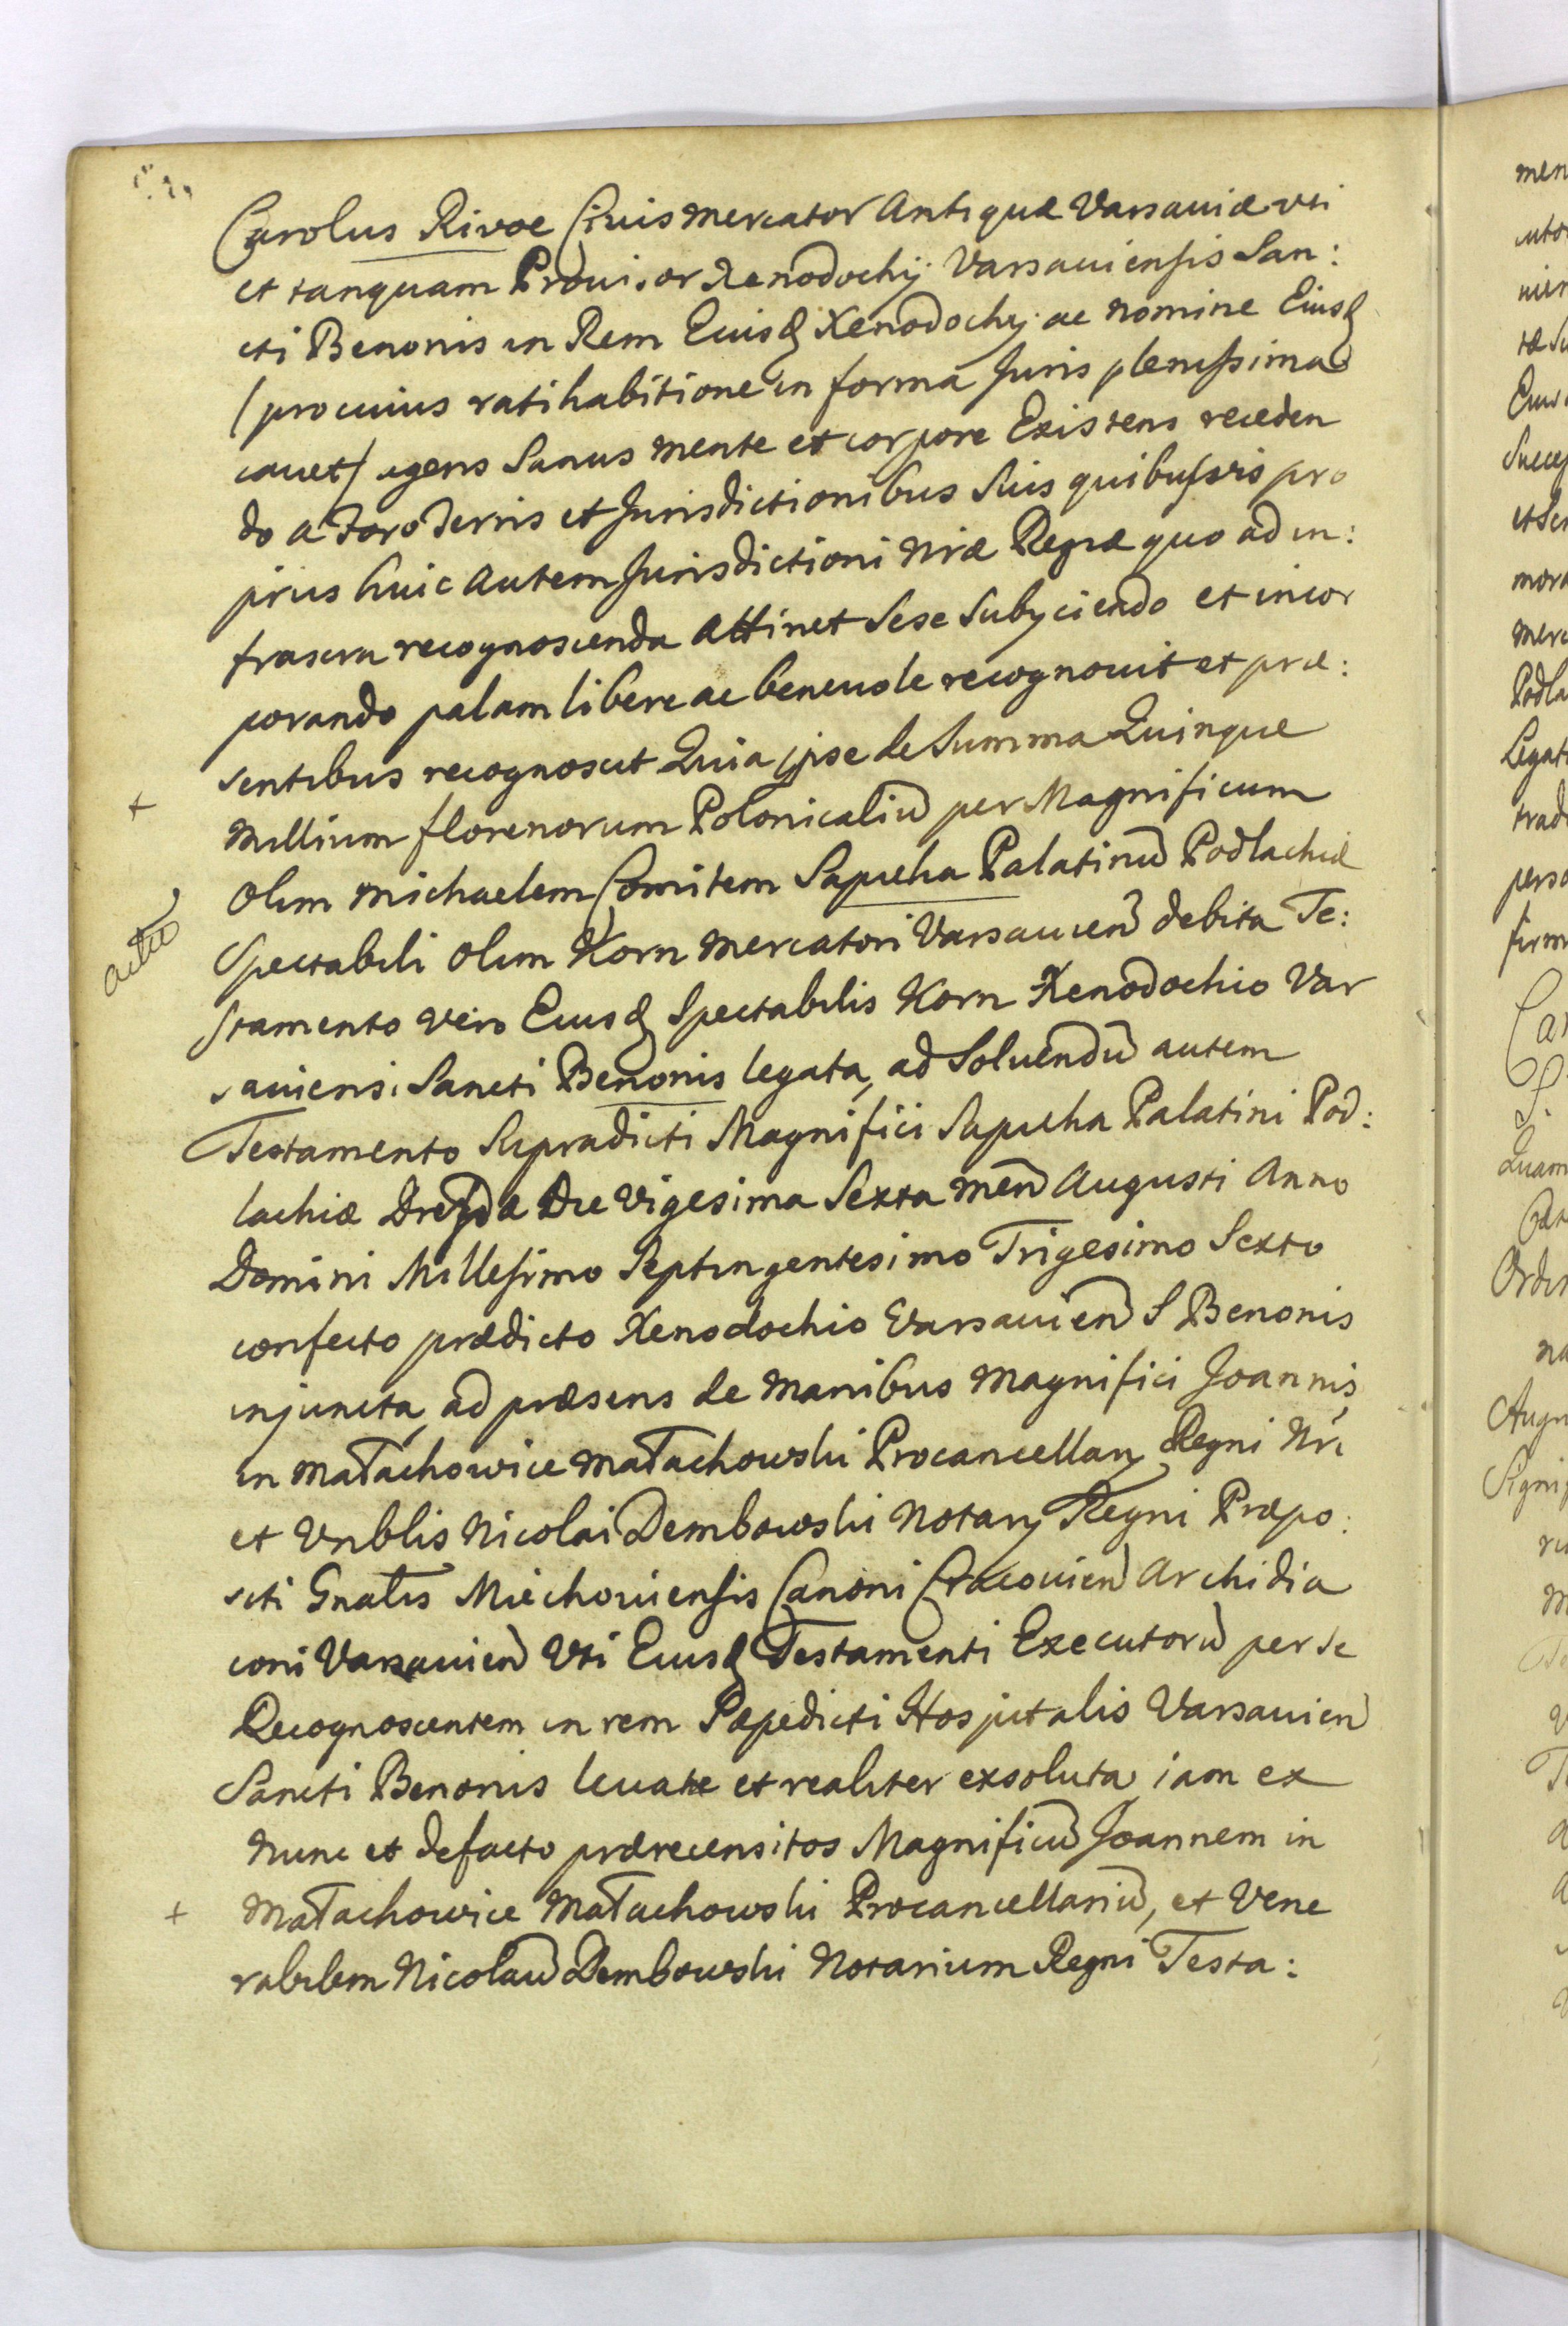 Carolus Rivoe Civis mercator Antiquæ Varsaviæ vti
et tanquam Provisor Xenodochij Varsauiensis San:
cti Benonis in Rem Eiusq Xenodochij ac nomine Eiusq
/pro cuius ratihabitione in forma Juris plenissima
cauet/ agens Sanus mente et corpore Existens receden
do a Foro Terris et Jurisdictionibus Suis quibusvis pro
prius huic autem Jurisdictioni Nræ Regiæ quo ad in:
frascra recognoscenda Attinet Sese Subijciendo et incor
porando palam libere ac beneuole recognouit et præ:
sentibus recognoscit Quia ipse de Summa Quinque
Millium florenorum Polonicaliu per Magnificum
Olim Michaelem Comitem Sapieha Palatinu Podlachiæ
Spectabili Olim Korn Mercatori Varsauien debita Te:
stamento vero Eiusq Spectabilis Korn Xenodochio Var
sauiensi Sancti Benonis legata, ad Soluendu autem
Testamento Supradicti Magnifici Sapieha Palatini Pod:
lachiæ Drezdæ Die Vigesima Sexta Men Augusti Anno
Domini Millesimo Septingentesimo Trigesimo Sexto
confecto prædicto Xenodochio Varsauien S Benonis
injuncta, ad præsens de manibus Magnifici Joannis
in Małachowice Małachowski Procancellarij Regni Nri
et Vnblis Nicolai Dembowski Notarij Regni Præpo:
siti Gnalis Miechouiensis Canoni Cracouien Archidia
coni Varsauien Vti Eiusq Testamenti Executoru per se
Recognoscentem in rem Præpedicti Hospitalis Varsauien
Sancti Benonis leuate et realiter exsoluta, iam ex
Nunc et defacto prærecensitos Magnificu Joannem in
Małachowice Małachowski Procancellariu, et Vene
rabilem Nicolau Dembowski Notarium Regni Testa: